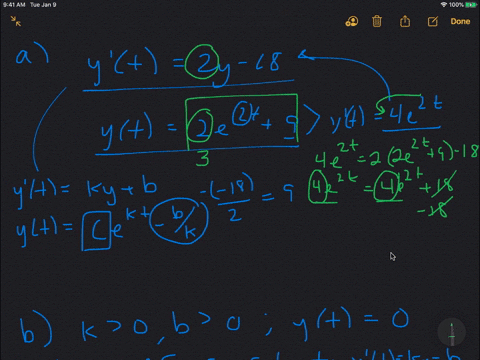 9:41 AM Tue Jan 9
100%
Done
a) y'(t) = 2y-18
y(t) = 2e^{2t} + 9 > y'(t) = 4e^{2t}
3
4e^{2t} = 2(2e^{2t}+9)-18
y'(t) = ky+b
-(-18)/2 = 9
4e^{2t} = 4e^{2t} + 18
-18
y(t) = Ce^{kt} - b/k
b) k>0, b>0 ; y(t) = 0